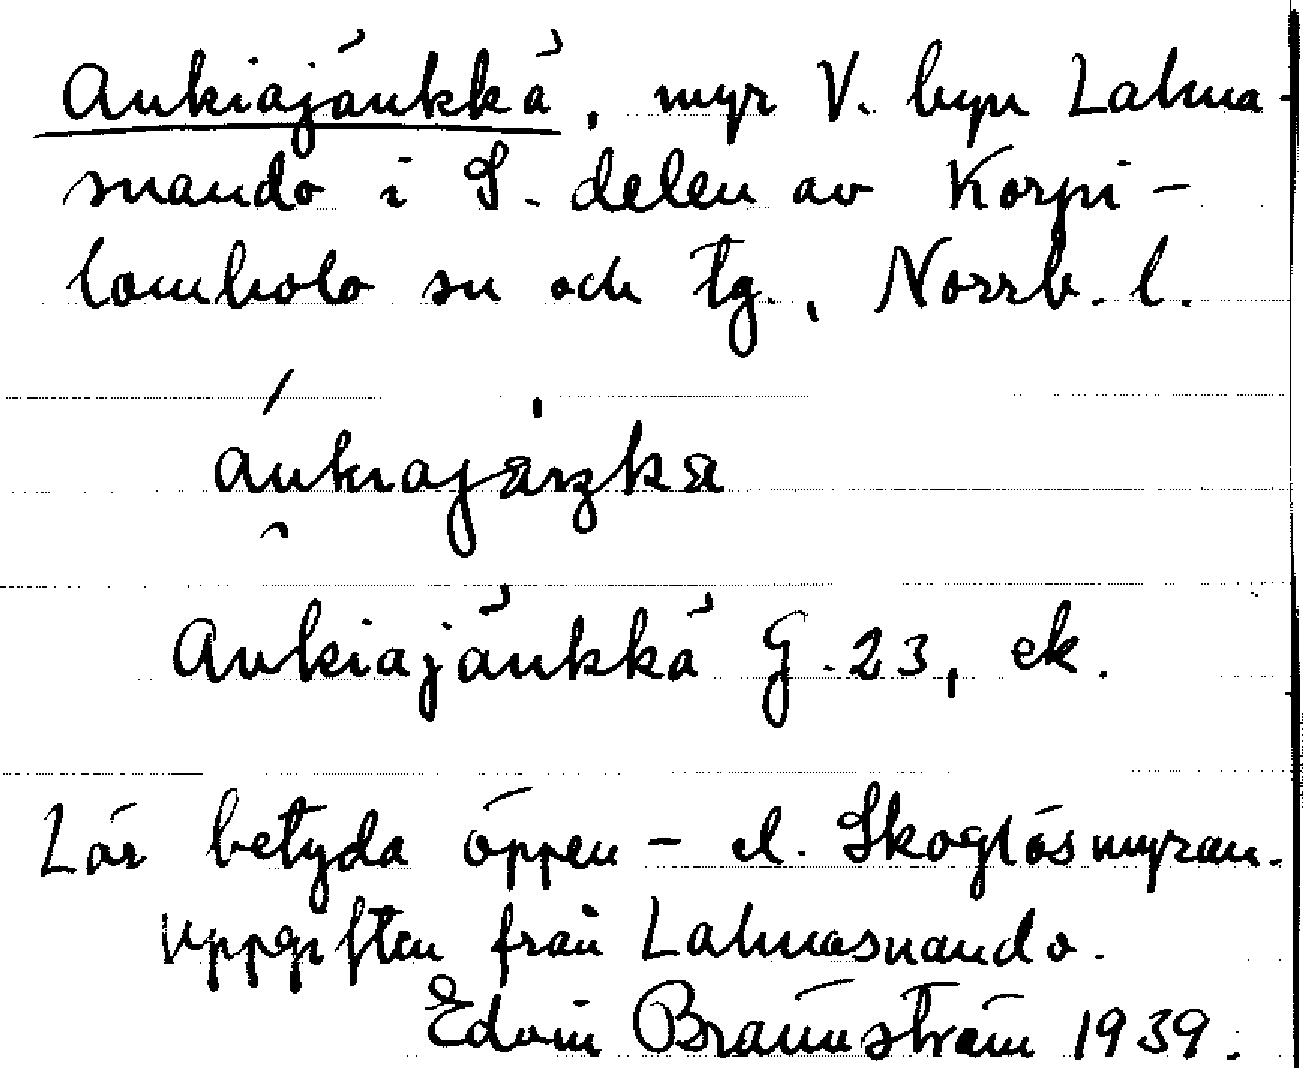 Aukiajänkkä, myr V. byn Lahna-
suando i S. delen av Korpi-
lombolo sn och tg., Norrb. l.
áu̯kiajäŋkä
Aukiajänkkä G. 23, ek.
Lär betyda öppen- el. Skoglösmyran.
Uppgiften från Lahnasuando.
Edvin Brännström 1939.